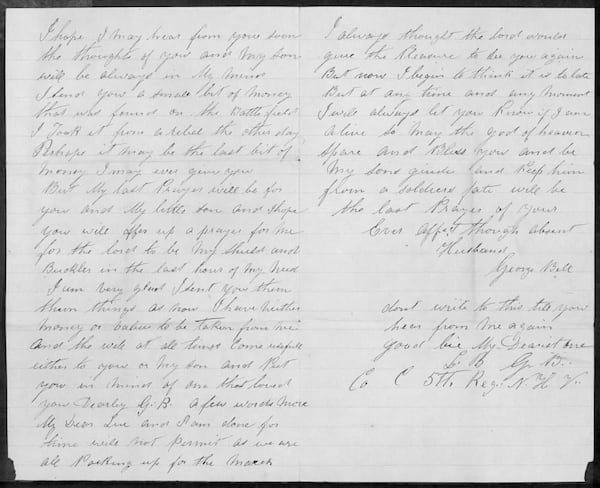 I hope I may hear from you soon
the thoughts of you and my son
will be always in My Mind
I Send you a small bit of money
that was found on the Battlefield
I Took it from a rebel the other day
Perhaps it may be the last bit of
money I may ever give you
But My last Prayer will be for
you and My little son and I hope
you will offer up a prayer for me
for the lord to be my shield and
Buckler in the last hour of My need
I am very glad I sent you them
them things as now I have neither
money or to be taken from me
and the will at all times Come usefull
either to you or my son and Put
you in mind of one that loved
you Dearley G.B. a few words More
My Dear and I am done for
time will not Permit as we are
all Packing up for the March
I always thought the lord would
give the Pleasure to see you again
But now I begin to think it is to late
But at any time and any moment
I will always let you Know if I am
alive So may the god of heaven
spare and Bless you and be
My sons guide and Keep him
from a Soldiers fate will be
the last Prayer of yours
Ever affect though absent
Husband
George Bell
dont write to this till you
hear from me again
good bie My Dearest one
G. B.
Co C 5th Reg. N. H. V.